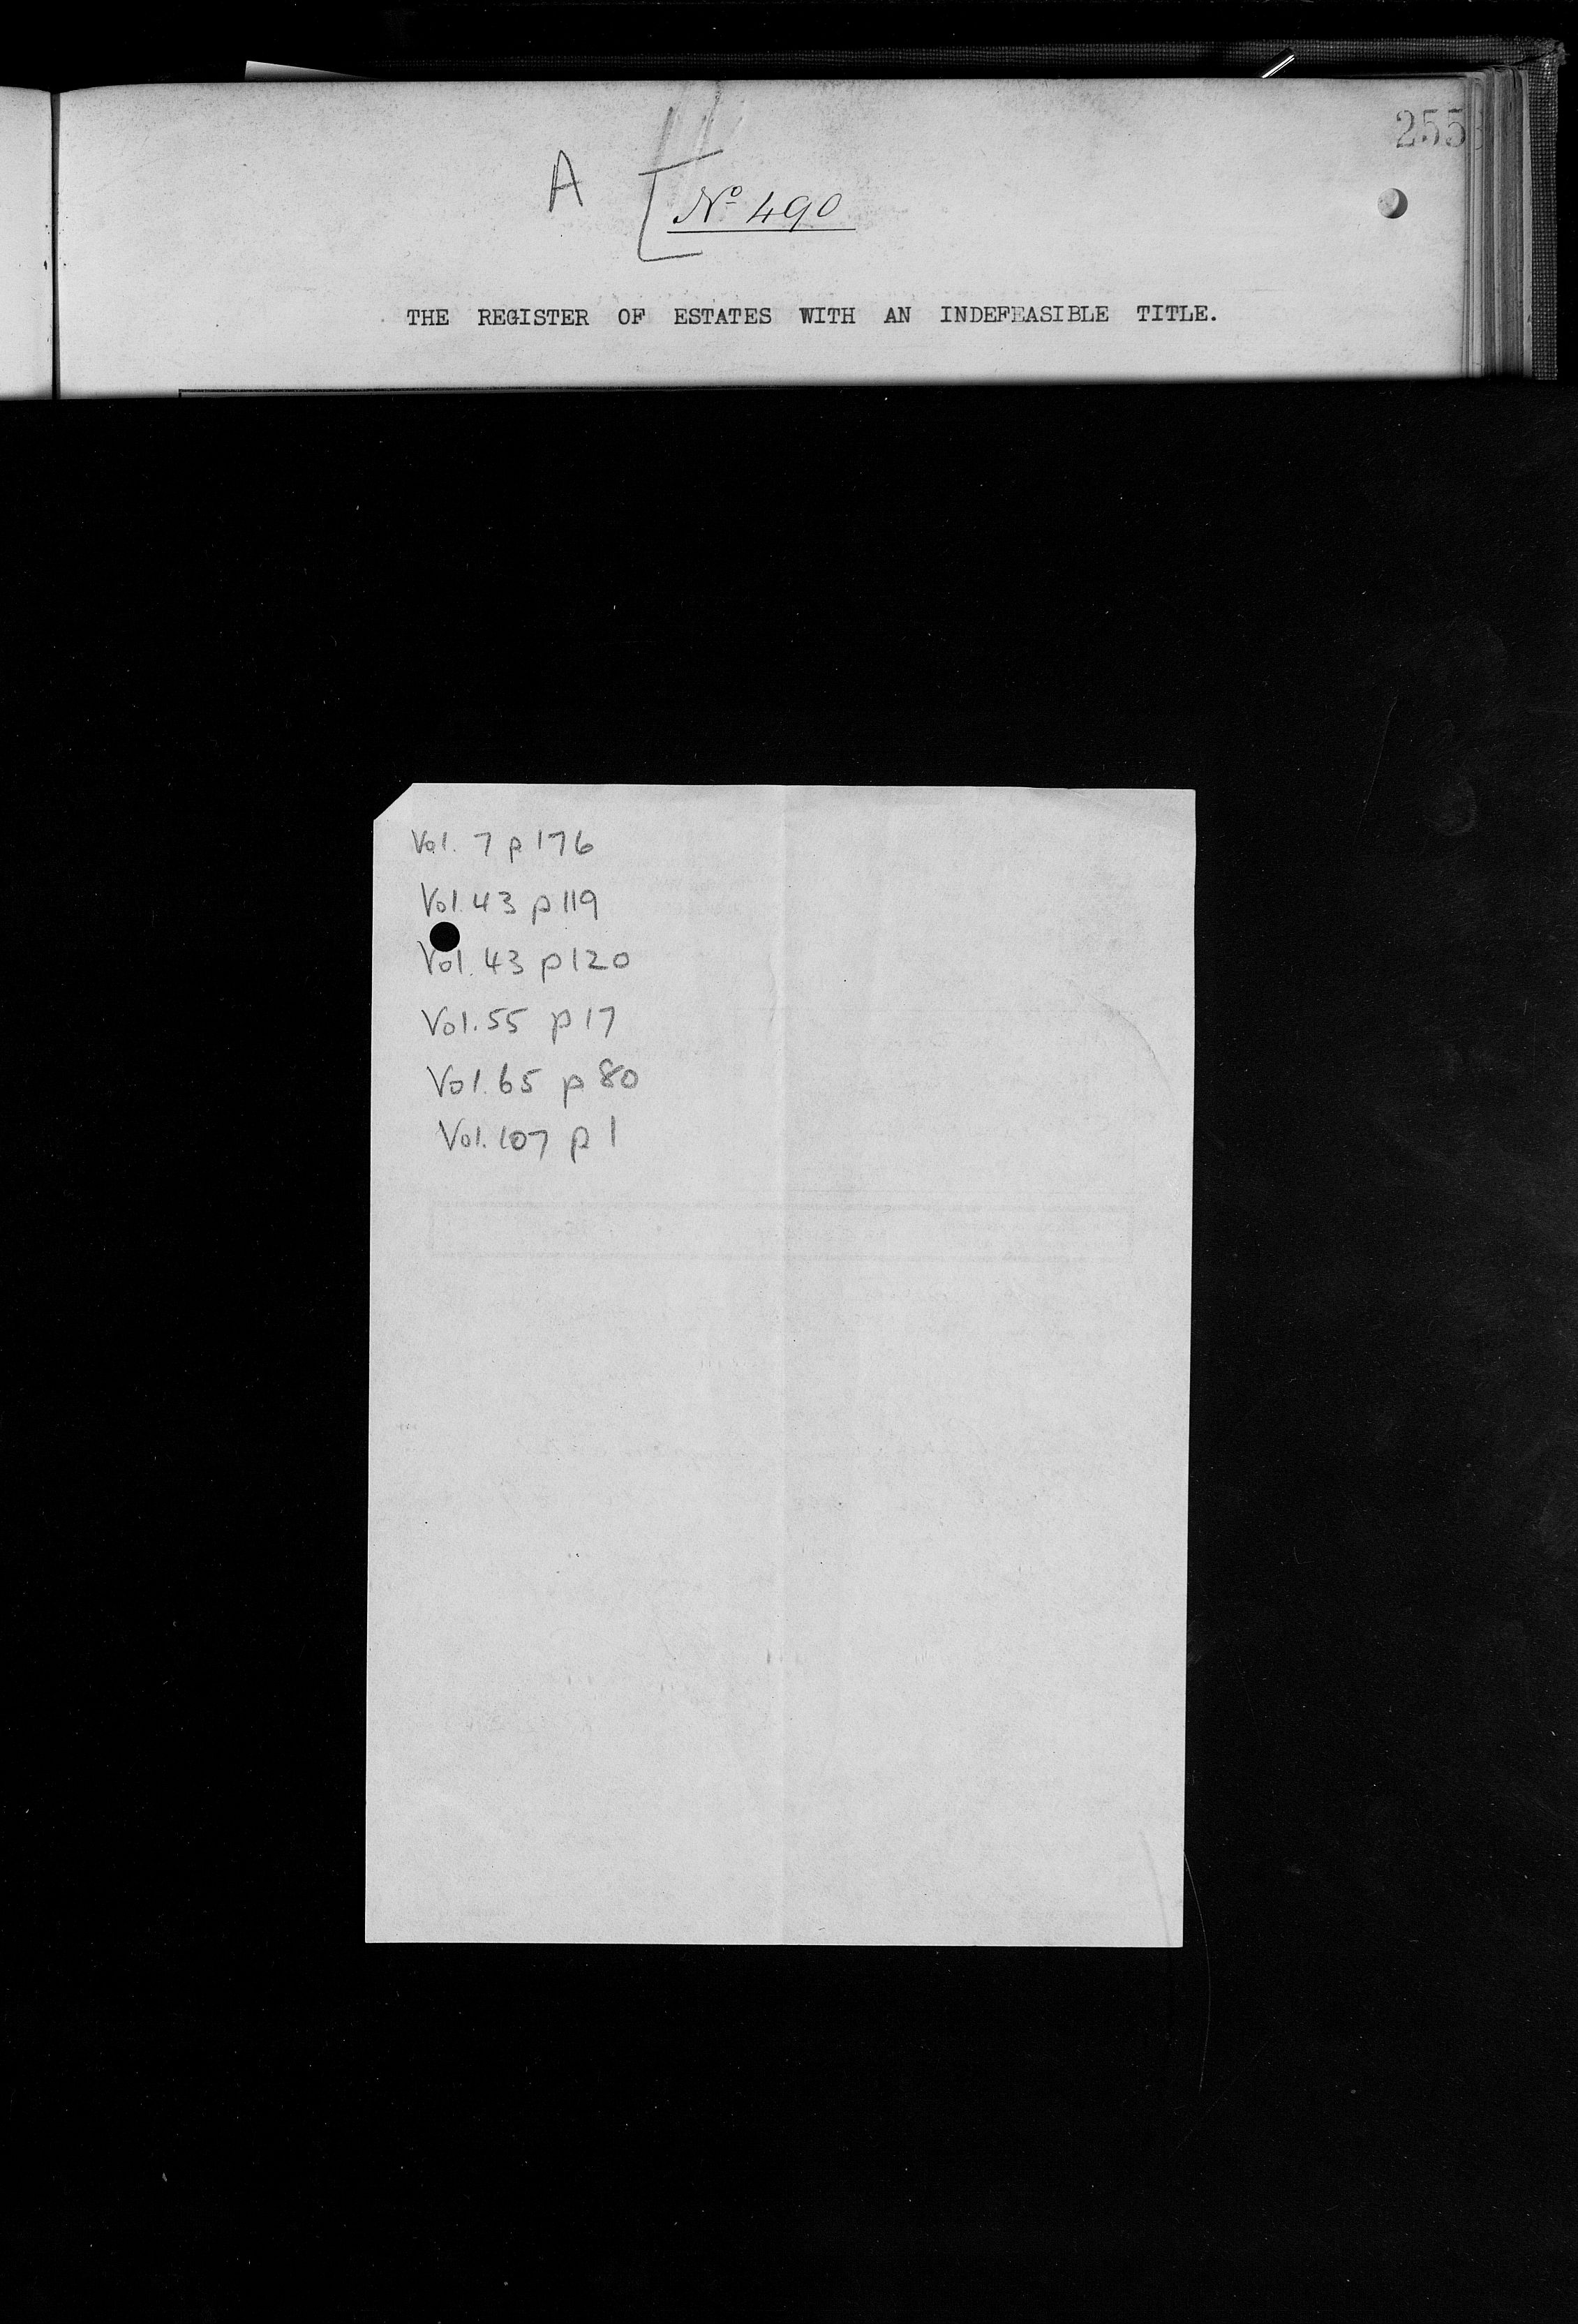 255
A [ Nº 490
THE REGISTER OF ESTATES WITH AN INDEFEASIBLE TITLE.
Vol. 7 p 176
Vol. 43 p 119
Vol. 43 p 120
Vol. 55 p 17
Vol. 65 p 80
Vol. 107 p 1